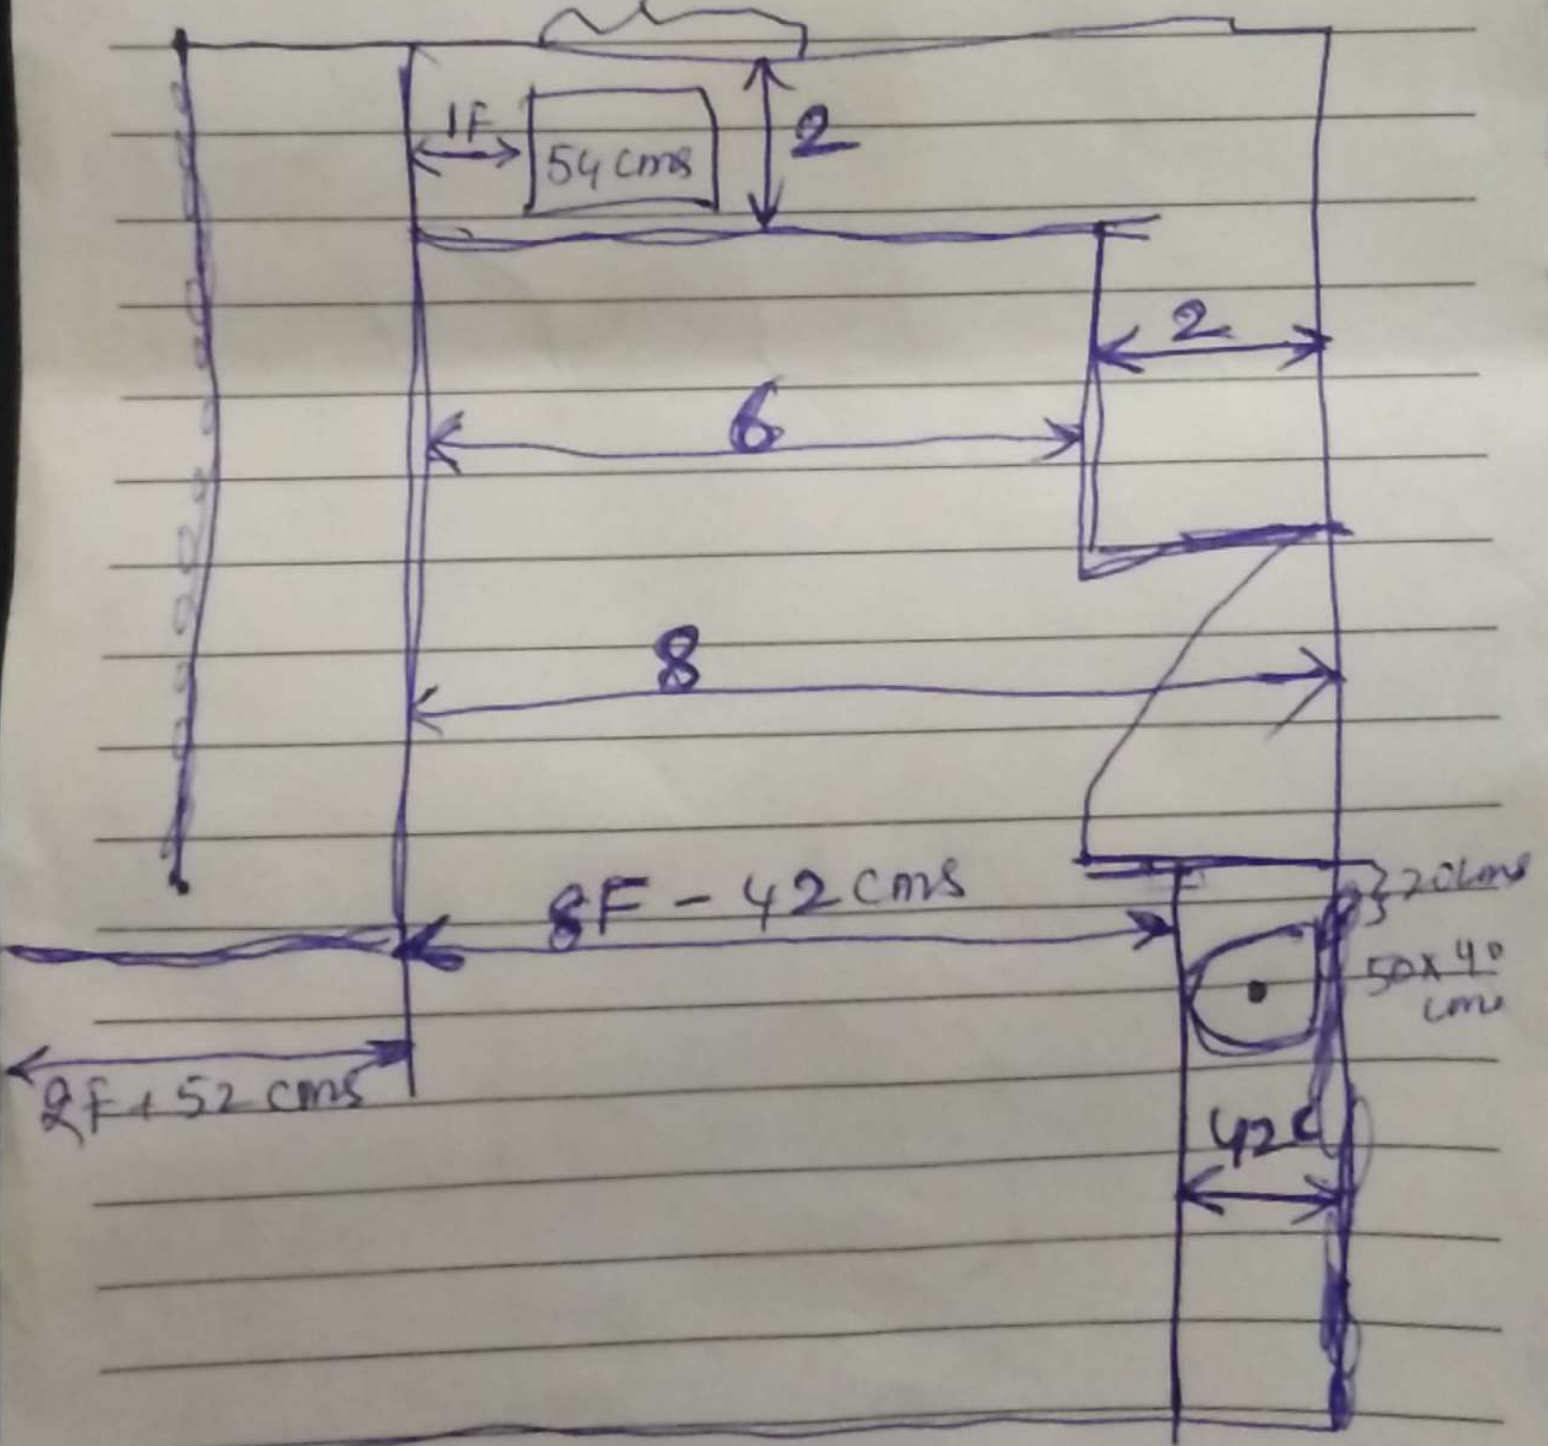 1F
54 cms
2
2
6
8
8F - 42 cms
20cms
50 x 40
cms
2F + 52 cms
42c